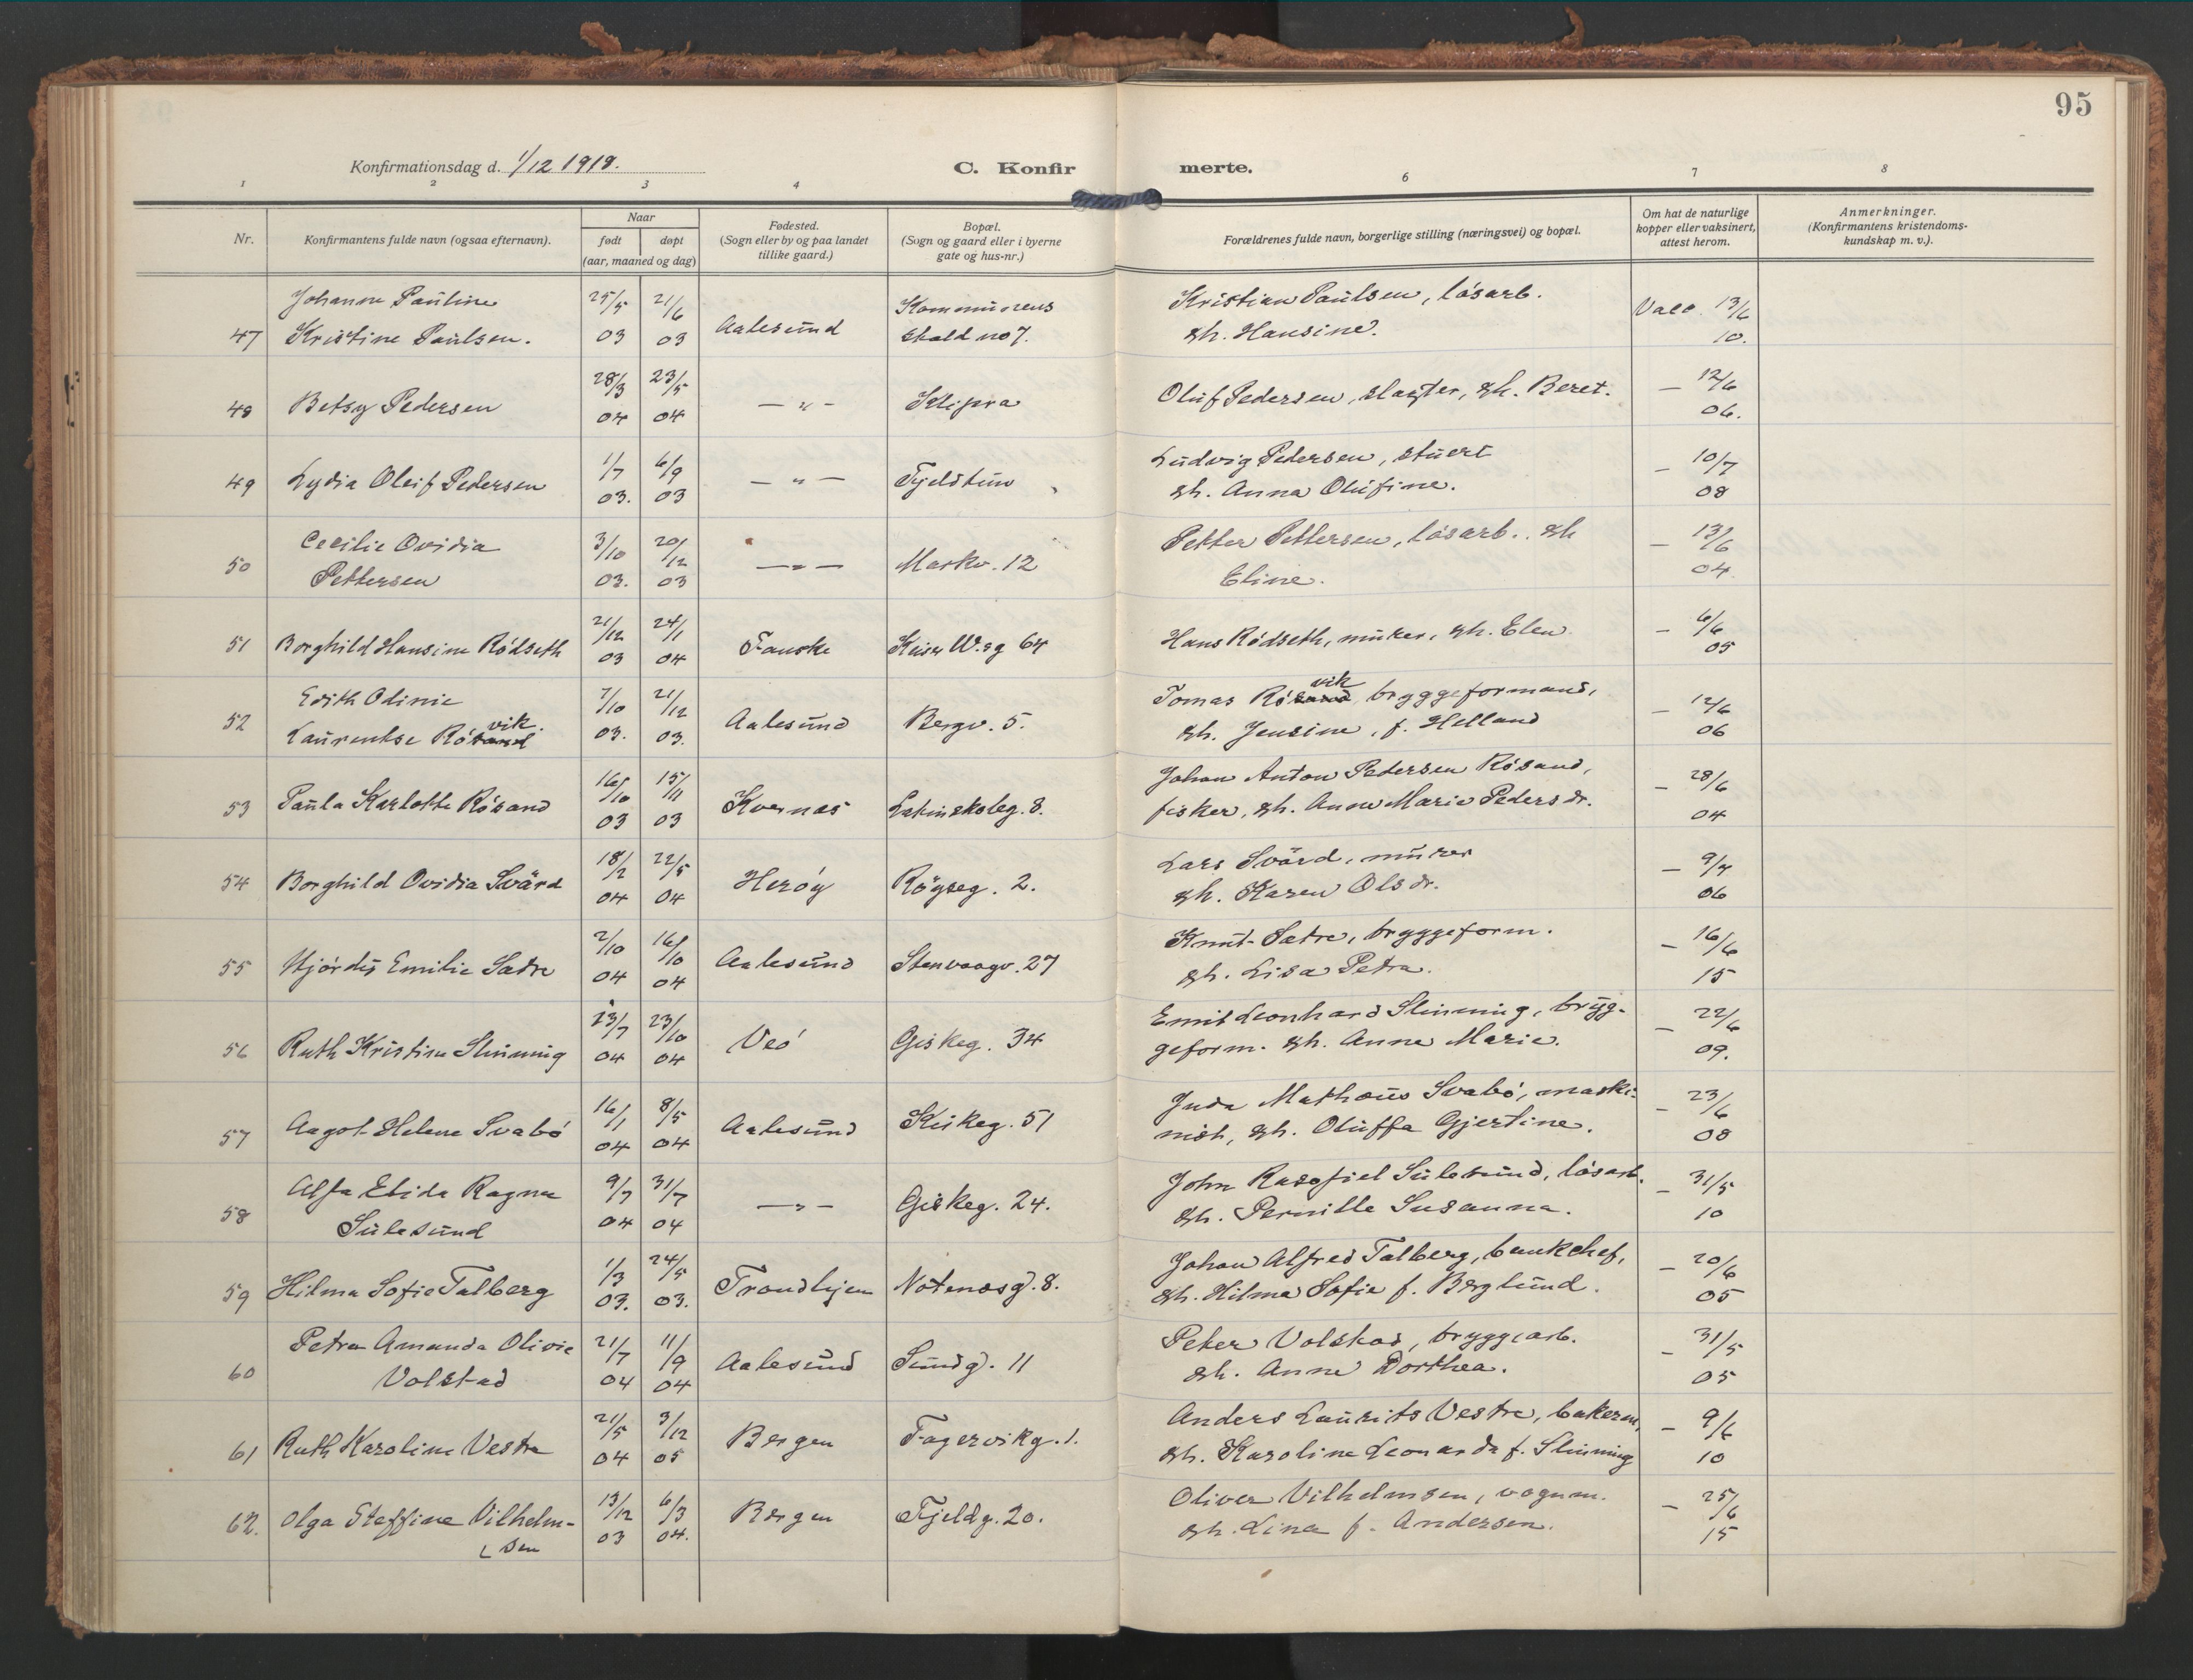 95
Konfirmationsdag d. 1/12 1918.
C. Konfir merte.
1 2 3 4 6 7 8
Nr.
Konfirmantens fulde navn (ogsaa efternavn).
Naar
født døpt
(aar, maaned og dag)
Fødested.
(Sogn eller by og paa landet
tillike gaard.)
Bopæl.
(Sogn og gaard eller i byerne
gate og hus-nr.)
Forældrenes fulde navn, borgerlige stilling (næringsvei) og bopæl.
Om hat de naturlige
kopper eller vaksinert,
attest herom.
Anmerkninger.
(Konfirmantens kristendoms-
kundskap m. v.).
Johanne Pauline 25/5 21/6 Kommunens Kristian Paulsen, løsarb. Vacc. 13/6
47 Kristine Paulsen. 03 03 Aalesund skald no 7. & h. Hansine. 10.
48 Betsy Pedersen 28/3 04 23/5 04 — " — Klipra Oluf Pedersen, slagter, & h. Beret. — 12/6 06.
49 Lydia Oleif Pedersen 1/7 03. 6/9 03 — " — Fjeldtun Ludvig Pedersen, stuert — 10/7 08
& h. Anna Olufine.
Cecilie Ovidia 3/10 20/12 Petter Pettersen, løsarb. & h — 13/6
50 Pettersen 03. 03 — " — Markv. 12 Eline. 04.
51 Borghild Hansine Rødseth 21/12 03 24/1 04 Fauske Keiser W.sg 64 Hans Rødseth, murer, & h. Elen — 6/6 05
Edith Olinie 7/10 21/12 Tomas Røsand vik bryggeformand, — 12/6
52 Laurentse Røsand vik 03. 03. Aalesund Bergv. 5. & h. Jensine, f. Helland 06
53 Paula Karlotte Røsand 16/10 03 15/11 03 Kvernes Latinskoleg. 8. Johan Anton Petersen Røsand, — 28/6 04
fisker, & h. Anne Marie Pedersdr.
54 Borghild Ovidia Svärd 18/2 04 22/5 04 Herøy Røyseg. 2. Lars Svärd, murer — 9/7 06
& h. Karen Olsdr.
55 Hjørdis Emilie Sætre 2/10 04 16/10 04 Aalesund Stenvaagv. 27 Knut Sætre, bryggeform. — 16/6 15
& h. Lisa Petra.
56 Ruth Kristine Slinning 23/7 04 23/10 04 Veø Giskeg. 34 Emil Leonhard Slinning, bryg- — 22/6 09.
geform. & h. Anne Marie.
57 Aagot Helene Svabø 16/1 04 8/5 04 Aalesund Kirkeg. 51 Juda Mathæus Svabø, maski- — 23/6 08
nist, & h. Oluffa Gjertine.
Alfa Elida Ragna 9/7 31/7 John Rasofiel Sulesund, løsarb. — 31/5
58 Sulesund 04 04 — " — Giskeg. 24. & h. Pernille Susanna. 10
59 Hilma Sofie Talberg 1/3 03. 24/5 03. Trondhjem Nøtenæsg. 8. Johan Alfred Talberg, bankchef, — 20/6 05
& h. Hilma Sofie f. Berglund.
Petra Amanda Olivie 21/7 11/9 Peter Volstad, bryggearb. — 31/5
60 Volstad 04 04 Aalesund Sundg. 11 & h. Anne Dorthea. 05
61 Ruth Karoline Vestre 21/5 04 3/12 05 Bergen Fagervikg. 1. Anders Laurits Vestre, bakerm, — 9/6 10
& h. Karoline Leonarda f. Slinning
62. Olga Steffine Vilhelm- 13/12 03 6/3 04. Bergen Fjeldg. 20. Oliver Vilhelmsen, vognm. — 25/6 15
sen & h. Lina f. Andersen.